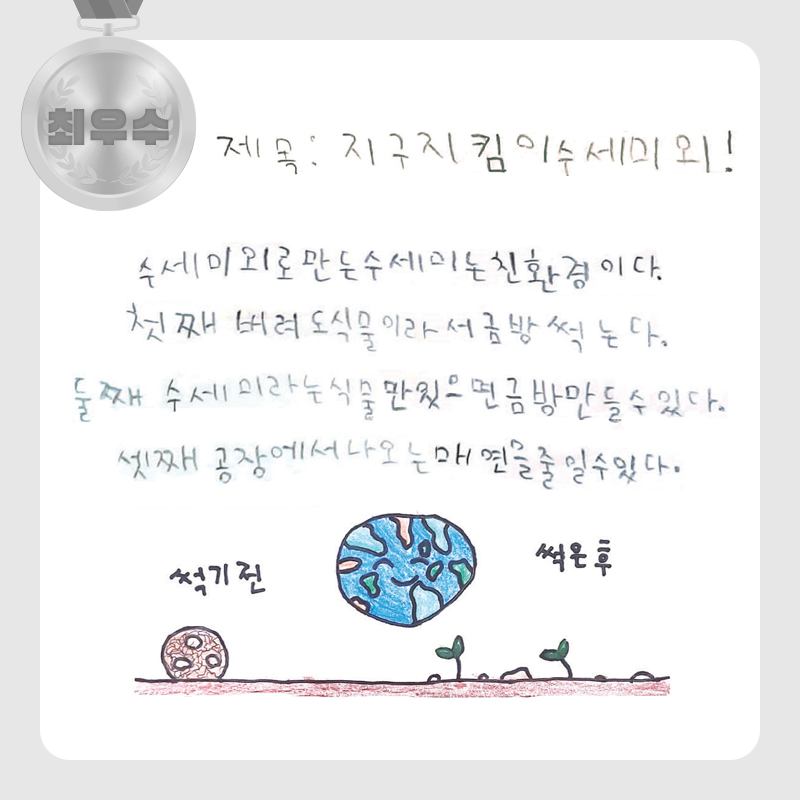 최우수
제목: 지구지킴이수세미외!
수세미외로만든수세미는친환경이다.
첫째 버려도식물이라서금방썩는다.
둘째 수세미라는식물만있으면금방만들수있다.
셋째 공장에서나오는매연을줄일수있다.
썩기전
썩은후